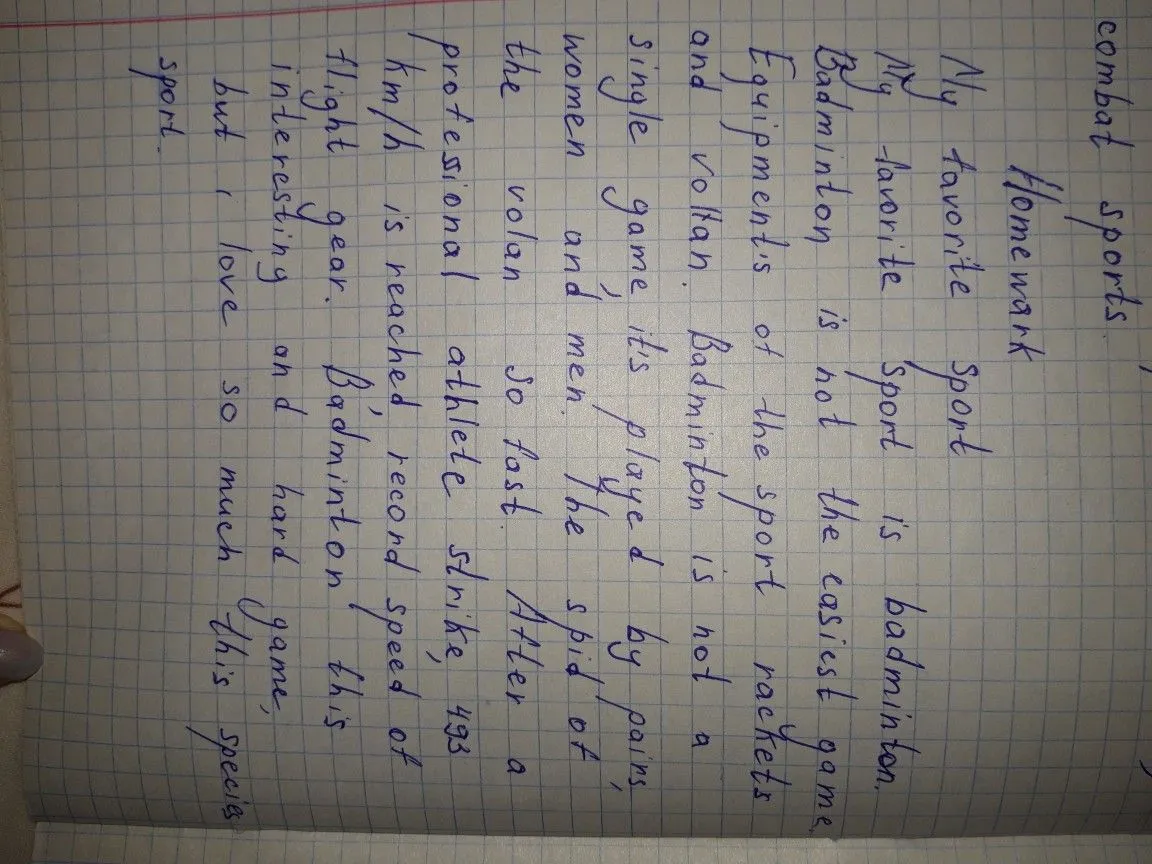 combat sports.
Homewark
My favorite sport
My favorite sport is badminton.
Badminton is not the easiest game
Equipment's of the sport rackets
and voltan. Badminton is not a
single game, it's played by pairs,
women and men. The spid of
the volan so fast. After a
professional athlete strike, 493
km/h is reached, record speed of
flight gear. Badminton this
interesting and hard game,
but i love so much this species
sport.